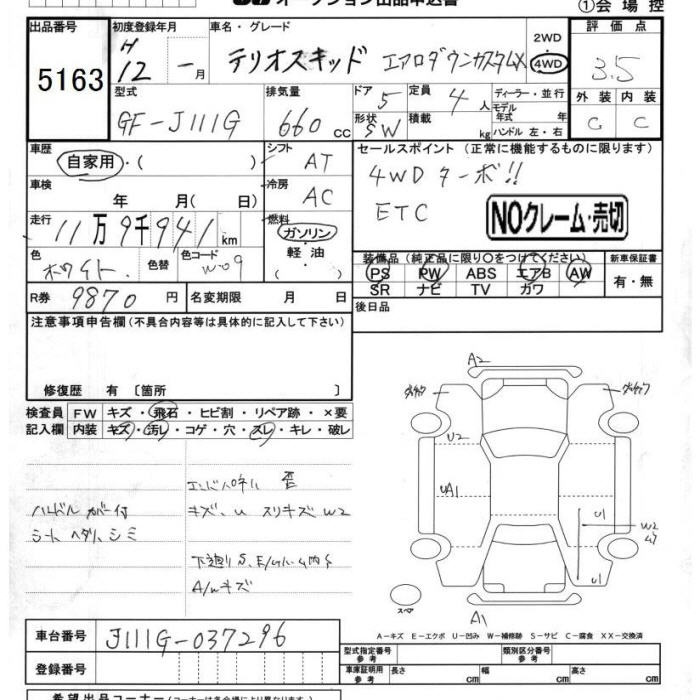 オークション出品申込書
①会場控
出品番号 初度登録年月 車名・グレード 2WD 4WD 評価点
5163 H 12 - 月 テリオスキッド エアロダウンカスタムX 3.5
型式 排気量 ドア 5 定員 4 人 ディーラー・並行 外装 内装
GF-J111G 660 cc 形状 SW 積載 kg モデル年式 年 ハンドル 左・右 C C
車歴 シフト セールスポイント (正常に機能するものに限ります)
自家用・( ) AT 4WD ターボ!!
車検 年 月( 日) 冷房 AC ETC NOクレーム・売切
走行 11万9千941km 燃料 ガソリン
軽・油 ( )
色 ホワイト 色替 色コード W09
装備品(純正品に限り○をつけてください) 新車保証書
PS PW ABS エアB AW 有・無
SR ナビ TV カワ
R券 9870 円 名変期限 月 日 後日品
注意事項申告欄(不具合内容等は具体的に記入して下さい)
修復歴 有 〔箇所 〕
検査員 FW キズ・飛石・ヒビ割・リペア跡・×要
記入欄 内装 キズ・汚レ・コゲ・穴・スレ・キレ・破レ
エンドパネル 歪
ハンドル カバー付 キズ、U スリキズ W2
シート ヘタリ、シミ
下廻りS、E/
A/Wキズ
A2
U2
UA1
U1
W2
U1
スペア
A1
A-キズ E-エクボ U-凹み W-補修跡 S-サビ C-腐食 XX-交換済
車台番号 J111G-037296
型式指定番号 参考 類別区分番号 参考
登録番号 車庫証明用 参考 長さ cm 幅 cm 高さ cm
希望出品コーナー(コーナーは各会場により異なります)